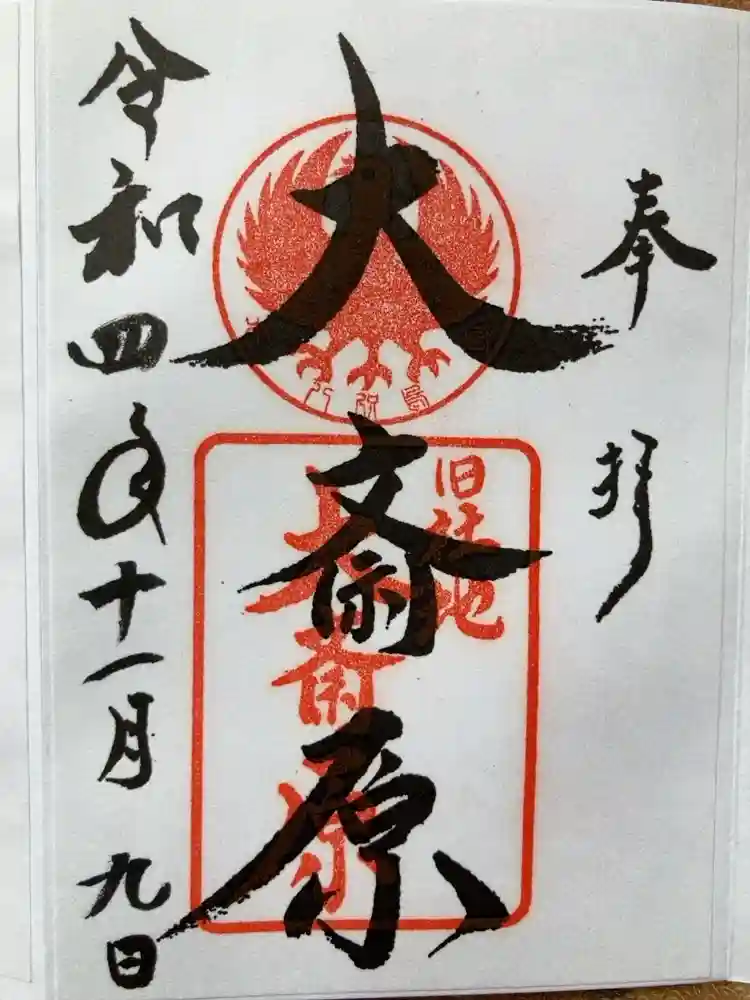 奉拝
大斎原
旧社地
大斎原
令和四年十一月九日